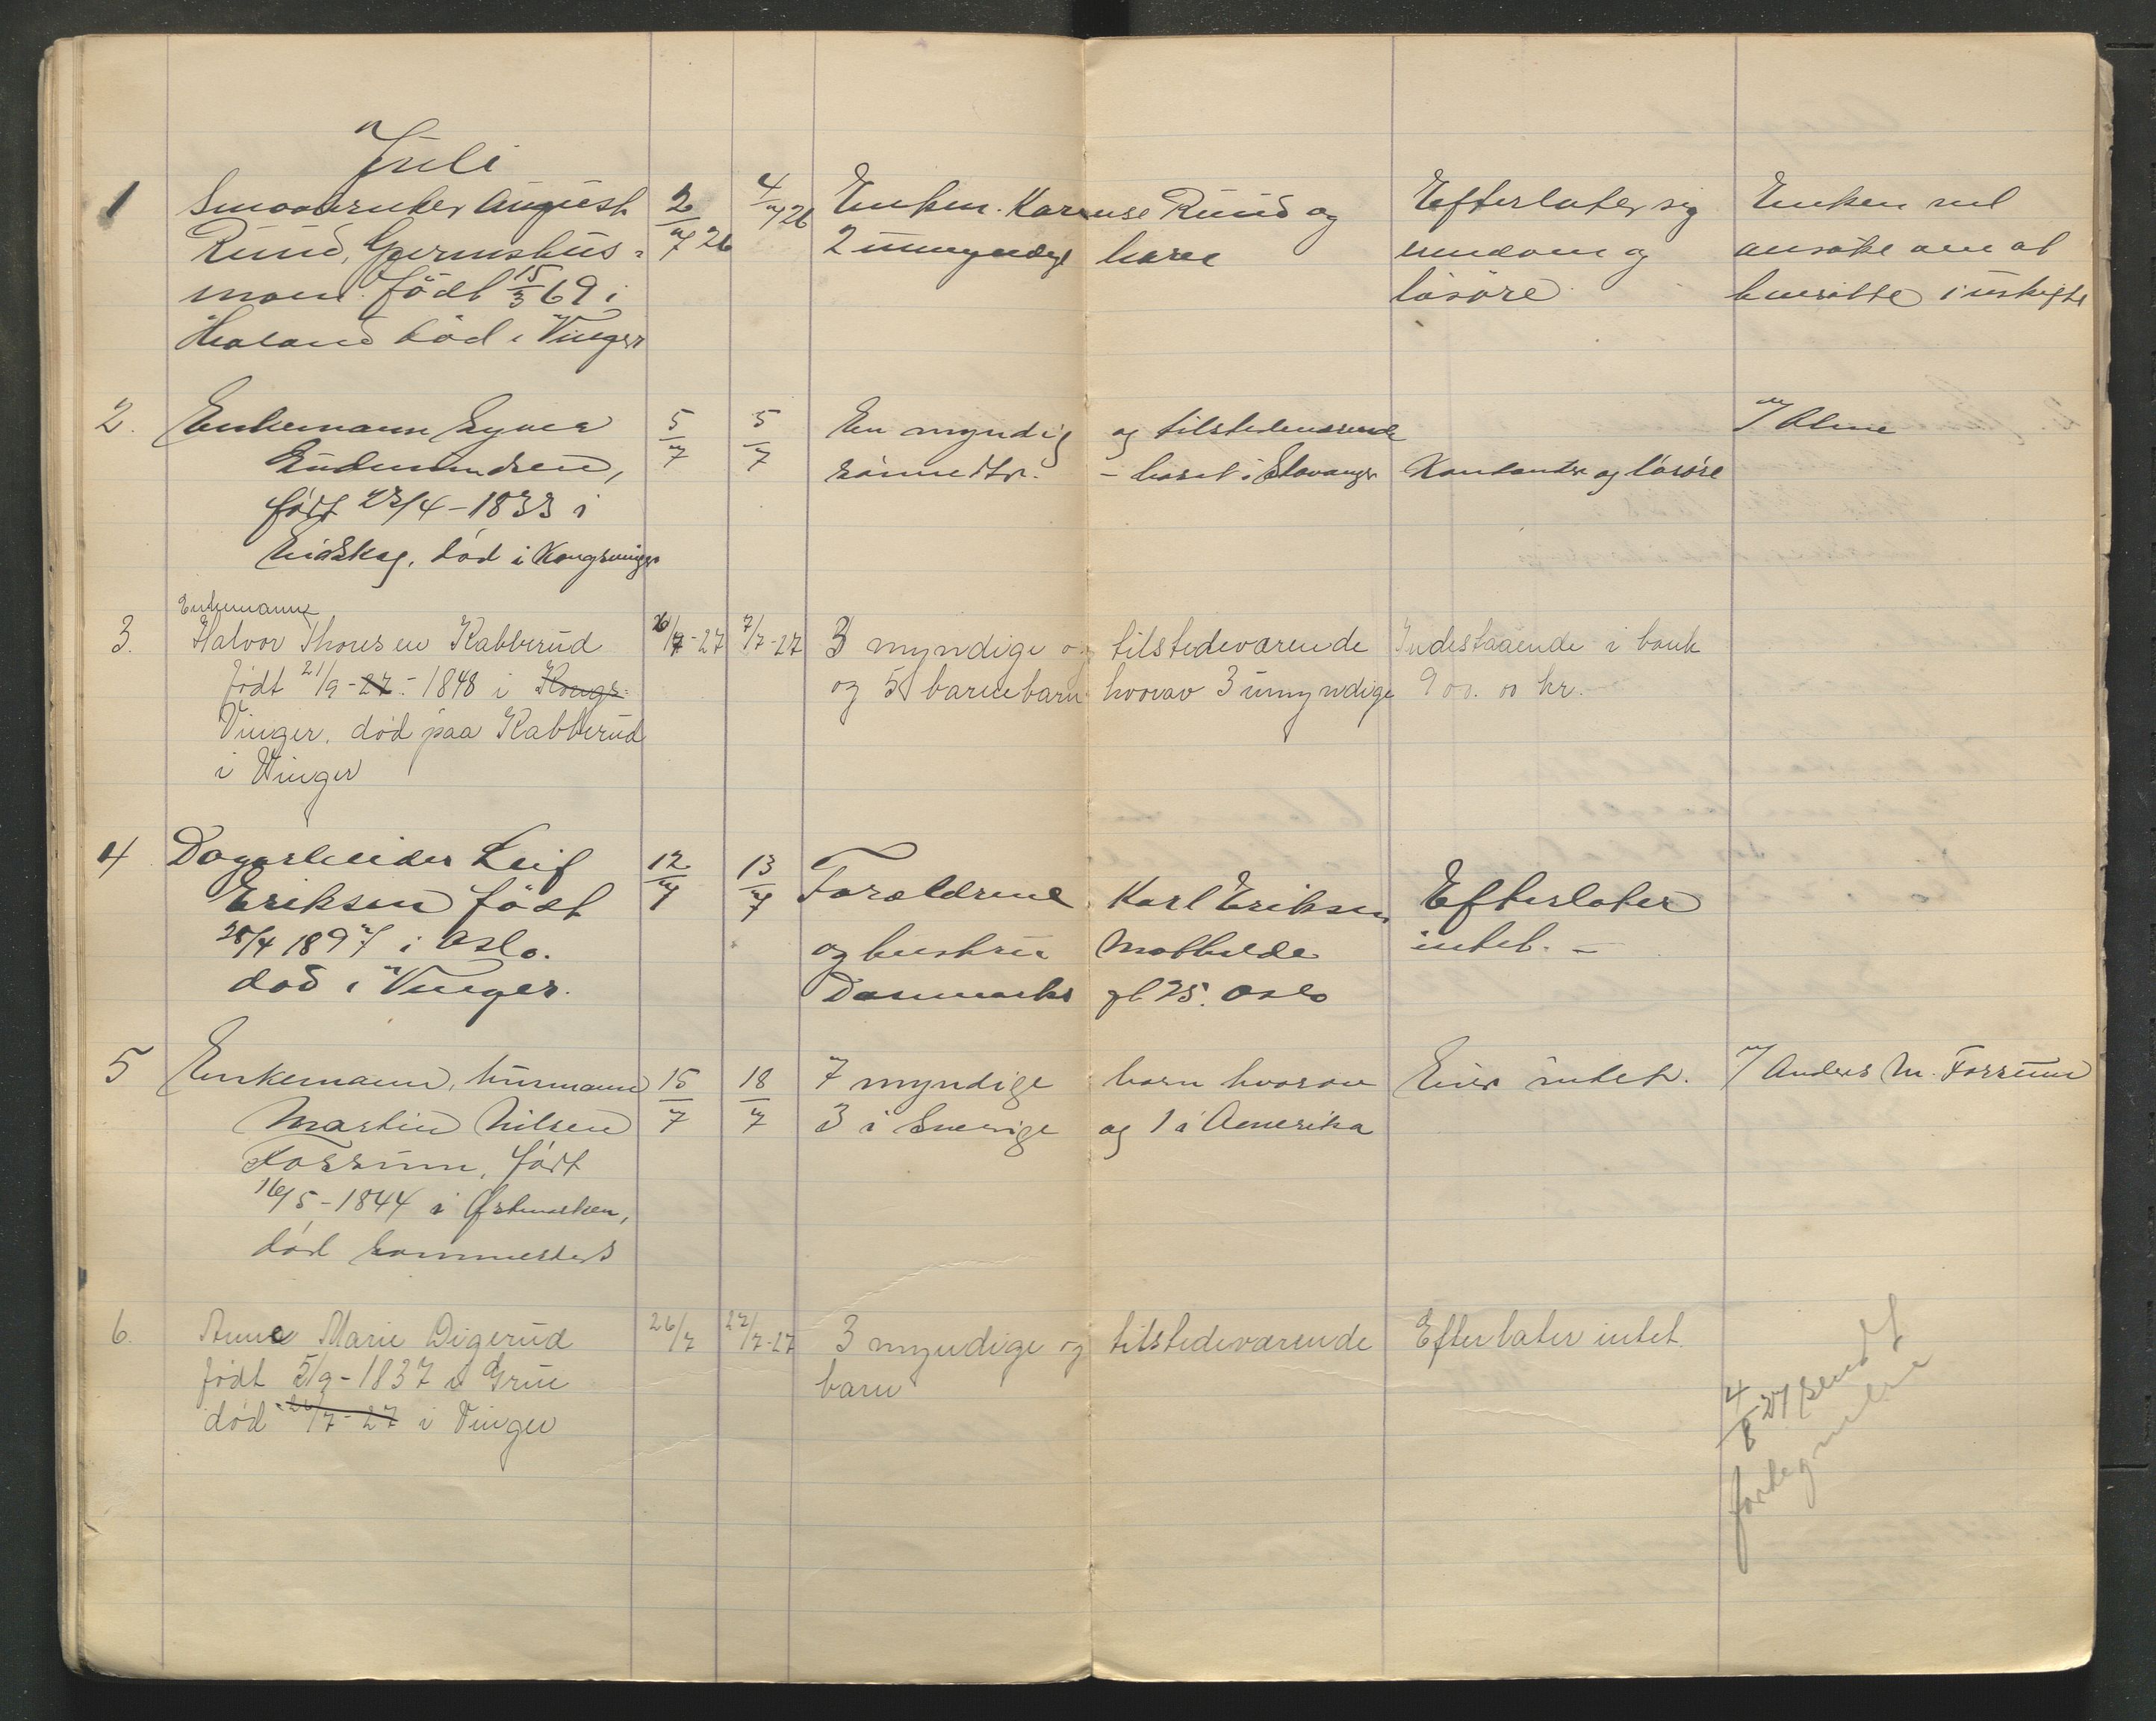 Juli
1 Smaabruker August 2/7 26 4/7 26 Enken Karense Ruud og Efterlater sig Enken vil
Ruud, Gjermshus- 2 umyndige barn eiendom og ansøke om at
moen. født 15/3 69 i løsøre bensitte i uskifte
død i Vinger
2. Enkemann Syver 5/7 5/7 En myndig og tilstedeværende
Gudmundsen, sønnedtr. - bosat i Stavanger Kontanter og løsøre
født 23/4 - 1833 i
Eidskog, død i Kongsvinger
Enkemann
3. Halvor Thoresen Kabberud 26/7-27 7/7-27 3 myndige og tilstedeværende Indestaaende i bank
født 21/9 - 27. - 1848 i Kongs- og 5 barnebarn hvorav 3 umyndige 900.00 kr.
Vinger, død paa Kabberud
i Vinger
4 Dagarbeider Leif 12/7 13/7 Forældrene Karl Eriksen Efterlater
Eriksen født og hustru Mathilde intet. -
28/4 1897 i Oslo. Danmarks gt 25. Oslo
død i Vinger.
5 Enkemann, husmann 15/7 18/7 7 myndige barn hvorav Eier intet. / Anders M. Fossum
Martin Nilsen 3 i Sverige og 1 i Amerika
Fossum, født
16/5 - 1844 i Østmarken,
død sammesteds
6. Anne Marie Digerud 26/7 27/7-27 3 myndige og tilstedeværende Efterlater intet.
født 5/9 - 1837 i Grue barn
død 26/7 - 27 i Vinger
4/8-27 sendt
fortegnelse